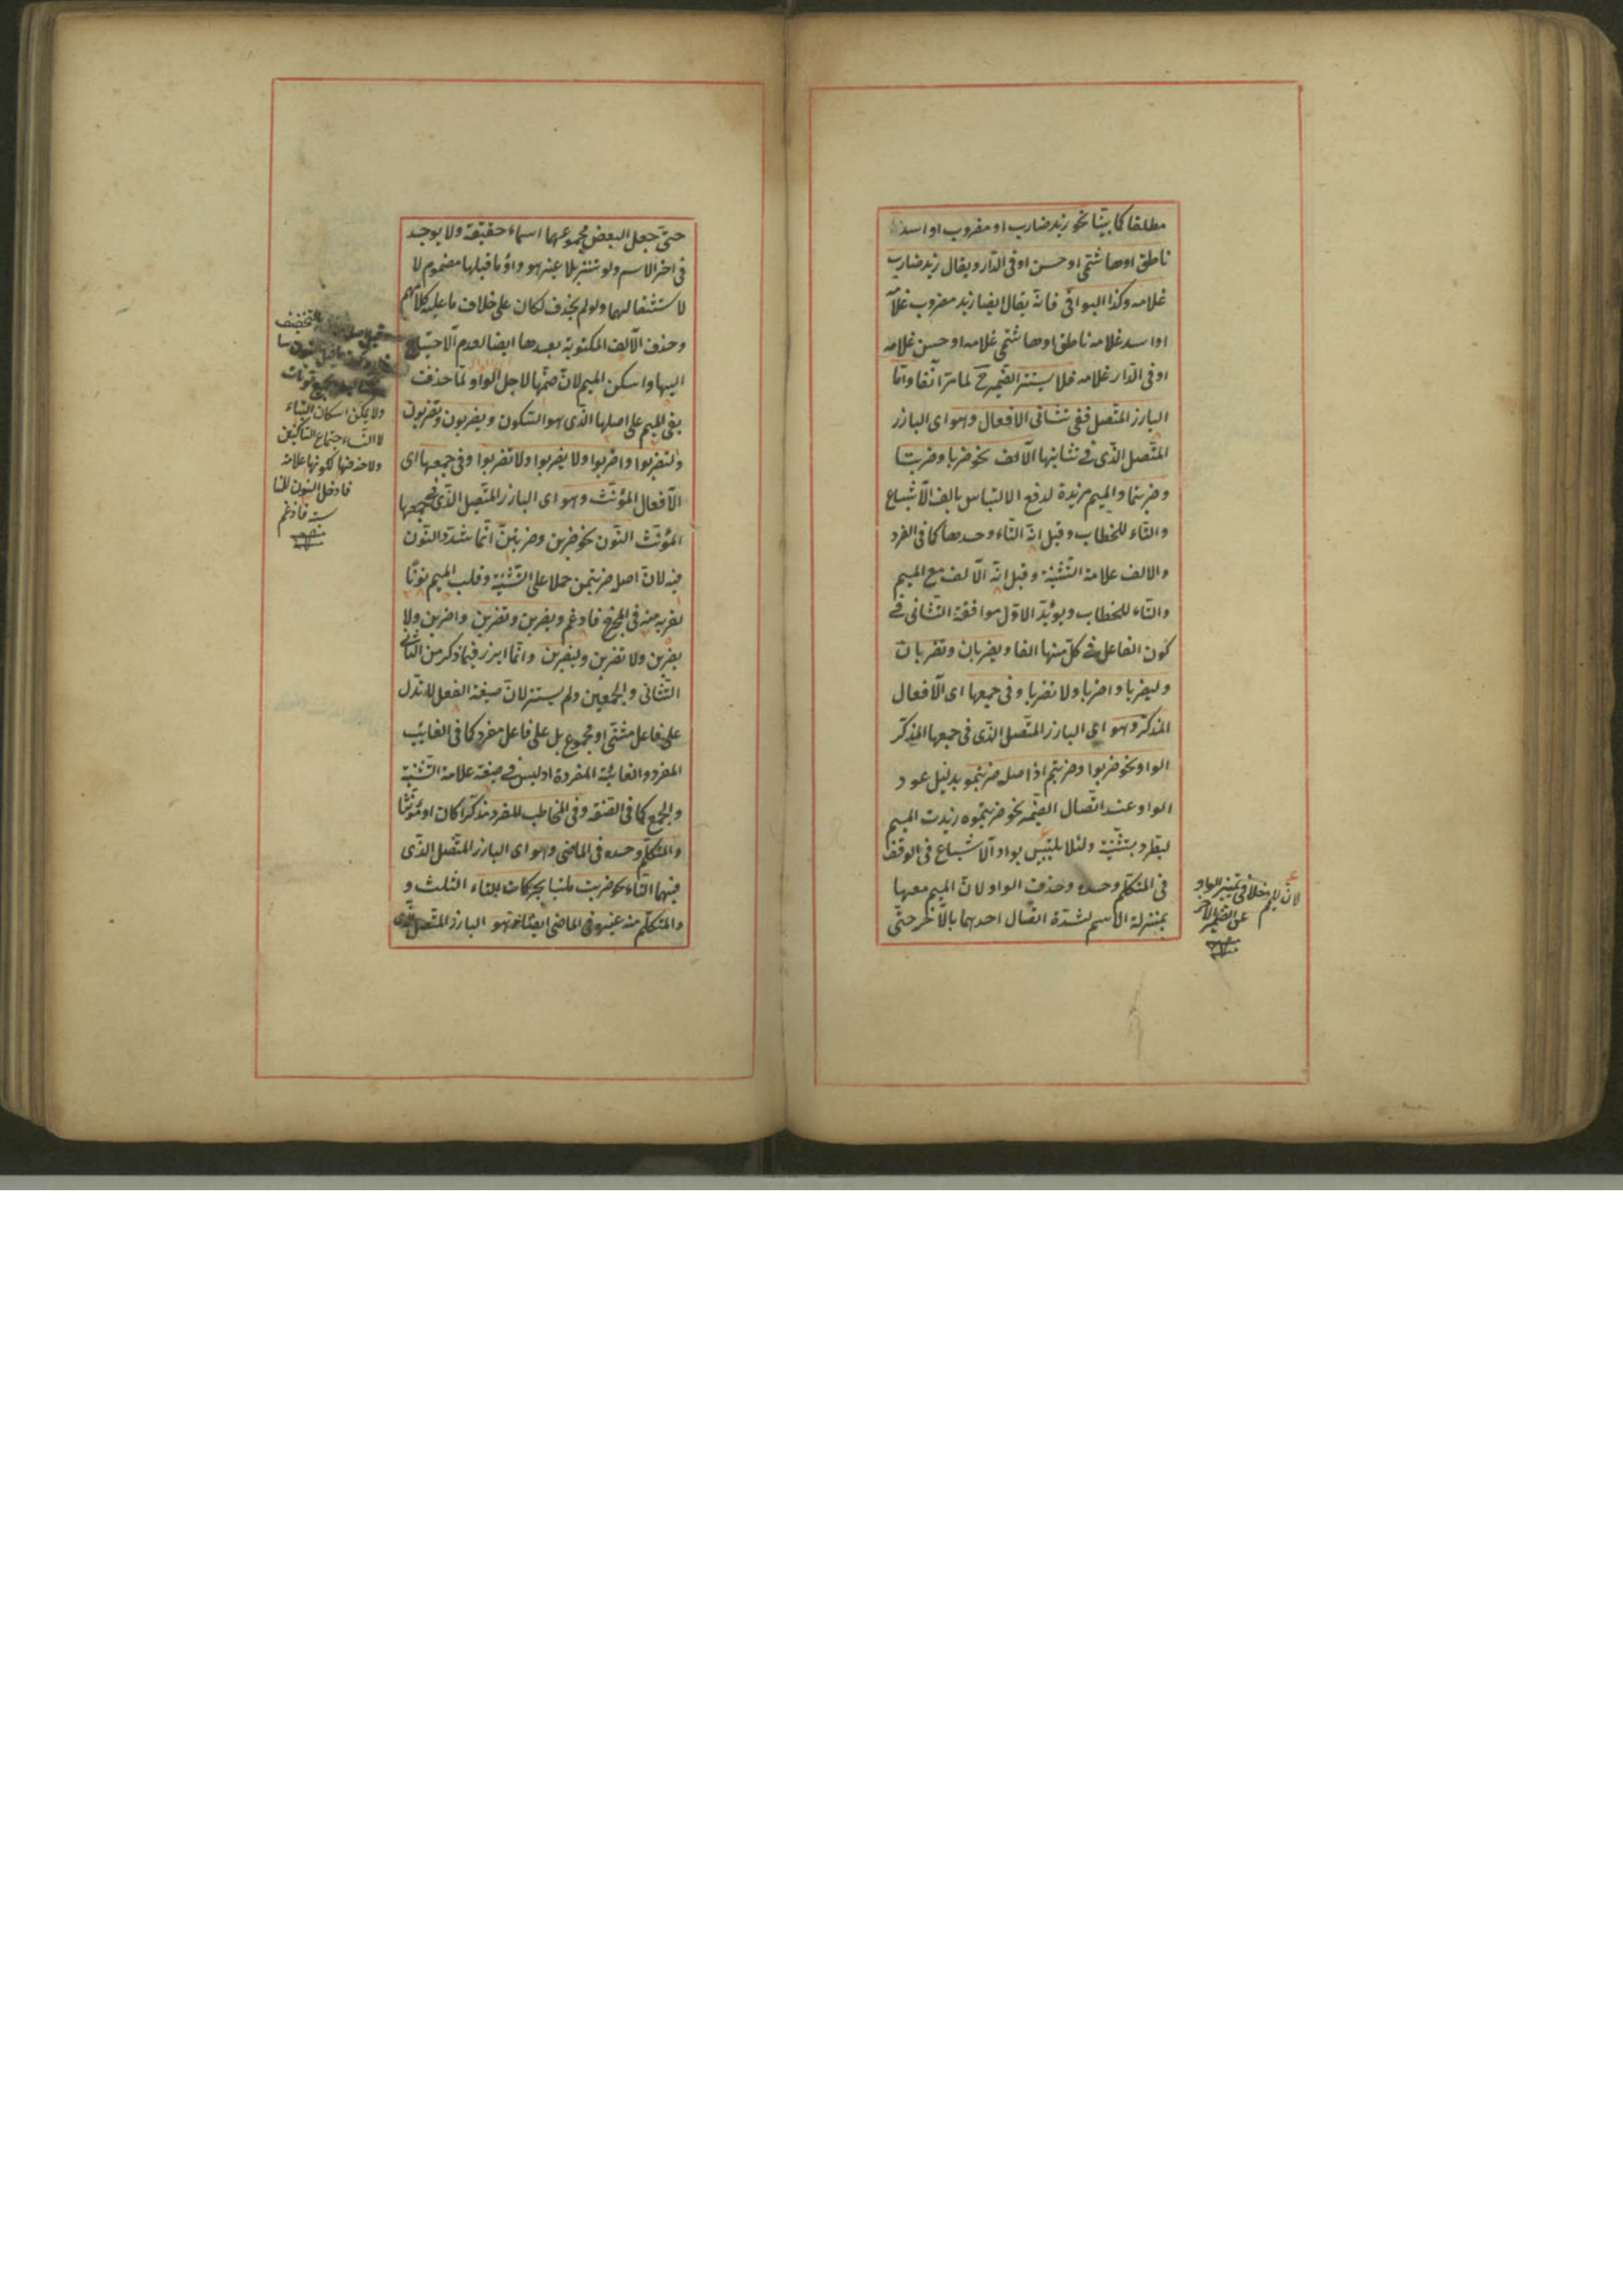 مطلقا كما بيّنا نحو زيد ضارب او مضروب او اسد
ناطق او هاشمّى او حسن او فى الدّار ويقال زيد ضارب
غلامه وكذا البواقى فانّه يقال ايضا زيد مضروب غلامه
او اسد غلامه ناطق او هاشمّى غلامه او حسن غلامه
او فى الدّار غلامه فلا يستتر الضّمير ح لما مرّ آنفا وامّا
البارز المتّصل ففى تثانى الافعال وهو اى البارز
المتّصل الذّى فى تثانيها الالف نحو ضربا وضربتا
وضربتما والميم مزيدة لدفع الالتباس بالف الاشباع
والتّاء للخطاب وقيل انّه التّاء وحدها كما فى الفرد
والالف علامة التّثنية وقيل انّه الالف مع الميم
والتّاء للخطاب ويؤيّد الاوّل موافقة التّثانى فى
كون الفاعل فى كلّ منها الفا ويضربان وتضربان
وليضربا واضربا ولا تضربا وفى جمعها اى الافعال
المذكّر وهو اى البارز المتّصل الذّى فى جمعها المذكّر
الواو نحو ضربوا وضربتم اذ اصله ضربتمو بدليل عود
الواو عند اتّصال الضّمير نحو ضربتموه زيدت الميم
ليطّرد بتثنية ولئلا يلتبس بواو الاشباع فى الوقف
فى المتكلّم وحده وحذف الواو لانّ الميم معها
بمنزلة الاسم لشدّة اتّصال احدهما بالآخر حتّى
لانّ للميم دخلا فى تميز الواو
عن الضّمير الآخر
منه
حتّى جعل البعض مجموعهما اسماء حقيقة ولا يوجد
فى اخر الاسم ولو تنزيلا غير هو واو ما قبلها مضموم لا
لاستثقالهما ولو لم يحذف لكان على خلاف ما عليه كلامهم
وحذف الالف المكتوبة بعدها ايضا لعدم الاحتياج
اليها واسكن الميم لانّ ضمّها لاجل الواو لمّا حذفت
بقى الميم على اصلها الذّى هو السّكون ويضربون وتضربون
وليضربوا واضربوا ولا يضربوا ولا تضربوا وفى جمعها اى
الافعال المؤنّث وهو اى البارز المتّصل الذّى فى جمعها
المؤنّث النّون نحو ضربن وضربتنّ انّما شدّد النّون
فيه لانّ اصله ضربتمن حملا على التّثنية وقلب الميم نونا
لقربه منه فى المخرج فادغم ويضربن وتضربن واضربن ولا
يضربن ولا تضربن وليضربن وانّما ابرز فيما ذكر من التّثانى
التّثانى والجمعين ولم يستتر لانّ صيغة الفعل لا تدلّ
على فاعل مثنّى او مجموع بل على فاعل مفرد كما فى الغائب
المفرد والغائبة المفردة اذ ليس فى صيغة علامة التّثنية
والجمع كما فى الصّفة وفى المخاطب المفرد مذكّرا كان او مؤنّثا
والمتكلّم وحده فى الماضى وهو اى البارز المتّصل الذّى
فيهما التّاء نحو ضربت ملتبسا بحركات التّاء الثلث و
والمتكلّم مع غيره فى الماضى ايضا وهو البارز المتّصل الذّى
ولا يمكن اسكان التّاء
لالتقاء اجتماع السّاكنين
ولا حذفها لكونها علامة
فادخل النّون للمنا
سبة فادغم
منه